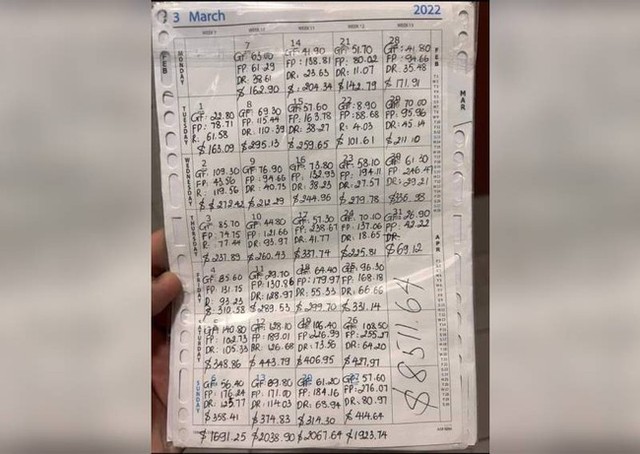 3 March
2022
WEEK 11
MONDAY
FEB
7
GF: 63.00
FP: 61.29
DR: 38.61
$ 162.90
14
GF: 41.90
FP: 138.81
DR: 23.63
$ 204.34
21
GF: 51.70
FP: 80.02
DR: 11.07
$ 142.79
28
GF: 41.80
FP: 94.66
DR: 35.48
$ 171.91
FEB
MAR
TUESDAY
1
GF: 22.80
FP: 78.71
R: 61.58
$ 163.09
8
GF: 69.30
FP: 115.44
DR: 110.39
$ 295.13
15
GF: 57.60
FP: 163.78
DR: 38.27
$ 259.65
22
GF: 8.90
FP: 88.68
R: 4.03
$ 101.61
29
GF: 70.00
FP: 95.96
DR: 45.14
$ 211.10
WEDNESDAY
2
GF: 109.30
FP: 43.56
R: 119.56
$ 272.42
9
GF: 76.90
FP: 94.66
DR: 40.73
$ 212.29
16
GF: 73.80
FP: 132.93
DR: 38.23
$ 244.96
23
GF: 58.10
FP: 194.11
DR: 27.57
$ 279.78
30
GF: 61.30
FP: 246.47
DR: 29.21
THURSDAY
3
GF: 85.70
FP: 74.75
R: 77.44
$ 237.89
10
GF: 44.80
FP: 121.66
DR: 93.97
$ 260.43
17
GF: 57.30
FP: 238.67
DR: 41.77
$ 337.74
24
GF: 70.10
FP: 137.06
DR: 18.65
$ 225.81
31
GF: 26.90
FP: 42.22
DR-
$ 69.12
APR
FRIDAY
4
GF: 85.60
FP: 131.75
R: 93.23
$ 310.58
11
GF: 29.70
FP: 130.96
DR: 128.97
$ 289.53
18
GF: 64.40
FP: 179.97
DR: 55.33
$ 299.70
25
GF: 96.30
FP: 168.18
DR: 66.66
$ 331.14
$ 8511.64
SATURDAY
5
GF: 140.80
FP: 102.73
DR: 105.33
$ 348.86
12
GF: 128.10
FP: 189.01
DR: 126.68
$ 443.79
19
GF: 106.40
FP: 226.99
DR: 73.56
$ 406.95
26
GF: 108.50
FP: 255.27
DR: 64.20
$ 427.97
SUNDAY
6
GF: 56.40
FP: 176.24
DR: 125.77
$ 358.41
13
GF: 89.80
FP: 171.00
DR: 114.03
$ 374.83
20
GF: 61.20
FP: 184.16
DR: 68.94
$ 314.30
27
GF: 57.60
FP: 276.07
DR: 80.97
$ 414.64
$ 1691.25
$ 2038.90
$ 2067.64
$ 1923.74